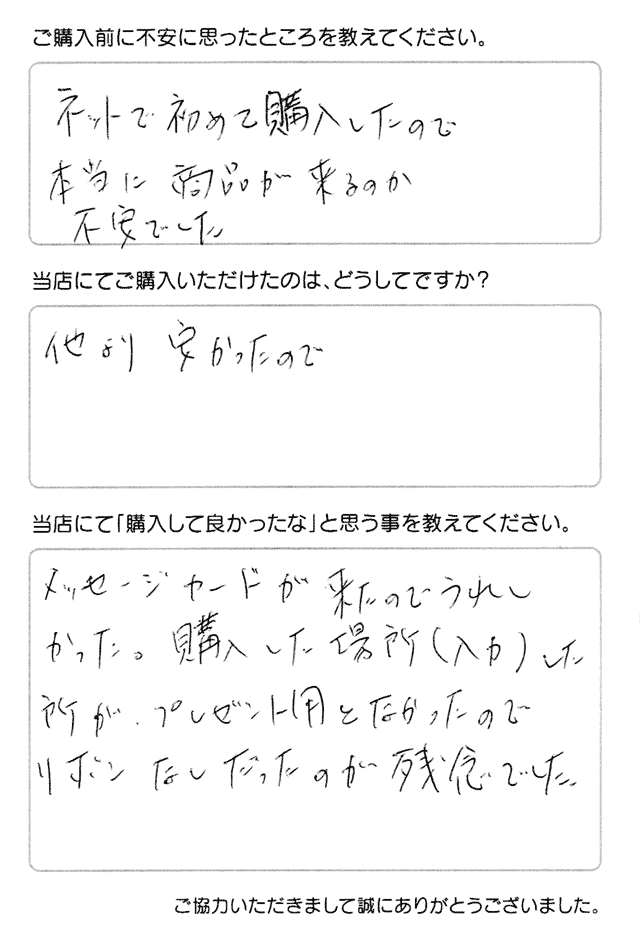 ご購入前に不安に思ったところを教えてください。
ネットで初めて購入したので
本当に商品が来るのか
不安でした
当店にてご購入いただけたのは、どうしてですか?
他より安かったので
当店にて「購入して良かったな」と思う事を教えてください。
メッセージカードが来たのでうれし
かった。購入した場所(入力)した
所が、プレゼント用となかったので
リボンなしだったのが残念でした。
ご協力いただきまして誠にありがとうございました。